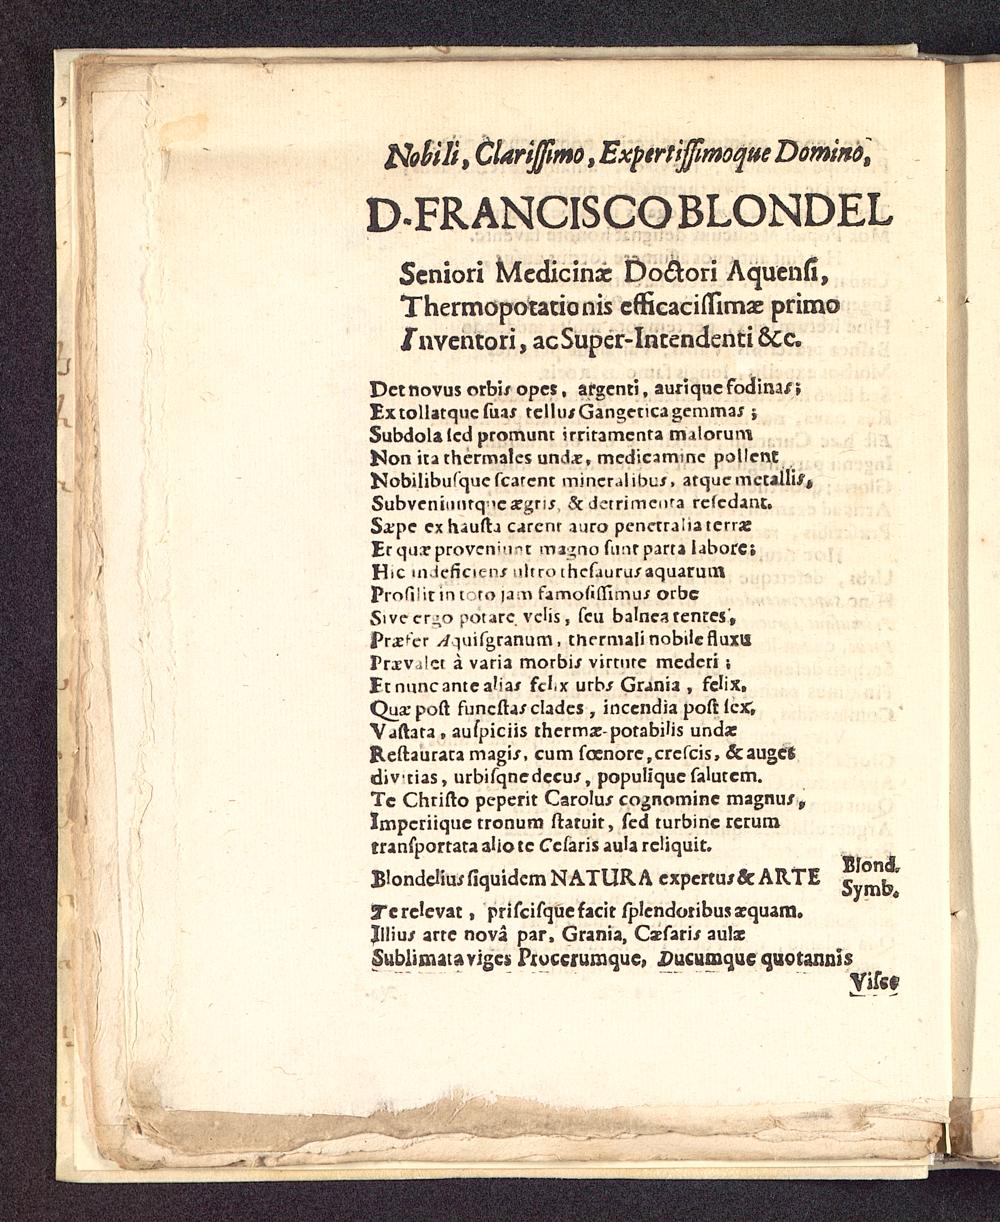 Nobili, Clariſſimo, Expertiſſimoque Domino,
D. FRANCISCO BLONDEL
Seniori Medicinæ Doctori Aquenſi,
Thermopotationis efficaciſſimæ primo
Inventori, ac Super-Intendenti &c.
Det novus orbis opes, argenti, aurique fodinas;
Extollatque ſuas tellus Gangetica gemmas;
Subdola ſed promunt irritamenta malorum
Non ita thermales undæ, medicamine pollent
Nobilibuſque ſcatent mineralibus, atque metallis,
Subveniuntque ægris, & detrimenta reſedant.
Sæpe exhauſta carent auro penetralia terræ
Et quæ proveniunt magno ſunt parta labore;
Hic indeficiens ultro theſaurus aquarum
Proſilit in toto jam famoſiſſimus orbe
Sive ergo potare velis, ſeu balnea tentes,
Præfer Aquiſgranum, thermali nobile fluxu
Prævalet à varia morbis virtute mederi;
Et nunc ante alias felix urbs Grania, felix,
Quæ poſt funeſtas clades, incendia poſt ſex,
Vaſtata, auſpiciis thermæ-potabilis undæ
Reſtaurata magis, cum fœnore, creſcis, & auges
divitias, urbiſqne decus, populique ſalutem.
Te Chriſto peperit Carolus cognomine magnus,
Imperiique tronum ſtatuit, ſed turbine rerum
transportata alio te Ceſaris aula reliquit.
Blondelius ſiquidem NATURA expertus & ARTE Blond. Symb.
Te relevat, priſciſque facit ſplendoribus æquam.
Illius arte novâ par, Grania, Cæſaris aulæ
Sublimata viges Procerumque, Ducumque quotannis
Viſce